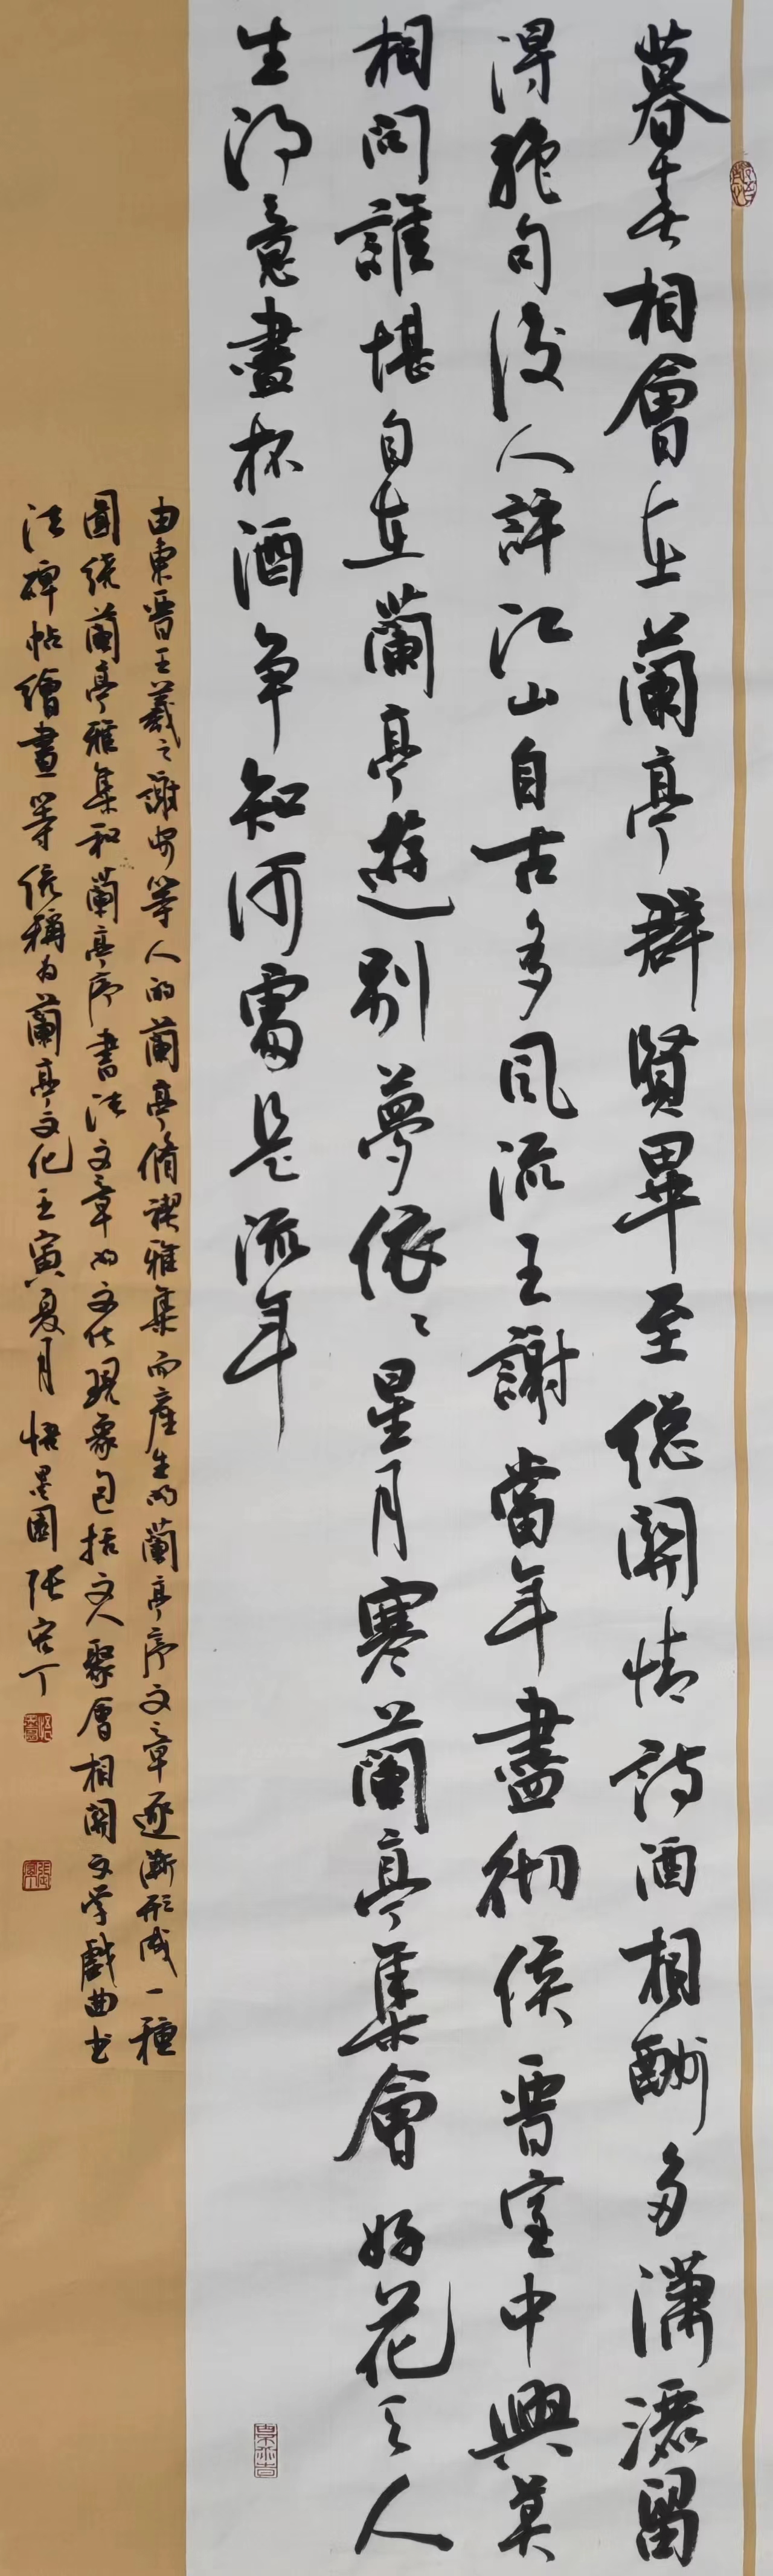 暮春相會在蘭亭群賢畢至總關情詩酒相酬多瀟灑留
得絕句後人評江山自古多風流王謝當年盡徹侯晉室中興莫
相問誰堪自在蘭亭遊別夢依〻星月寒蘭亭集會好花天人
生得意盡杯酒争知何處是流年
由東晉王羲之謝安等人的蘭亭脩禊雅集而産生的蘭亭序文章逐漸形成一種
圍繞蘭亭雅集和蘭亭序書法文章的文化現象包括文人聚會相關文学戲曲书
法碑帖繪畫等統稱为蘭亭文化壬寅夏月悟墨園張宏丁